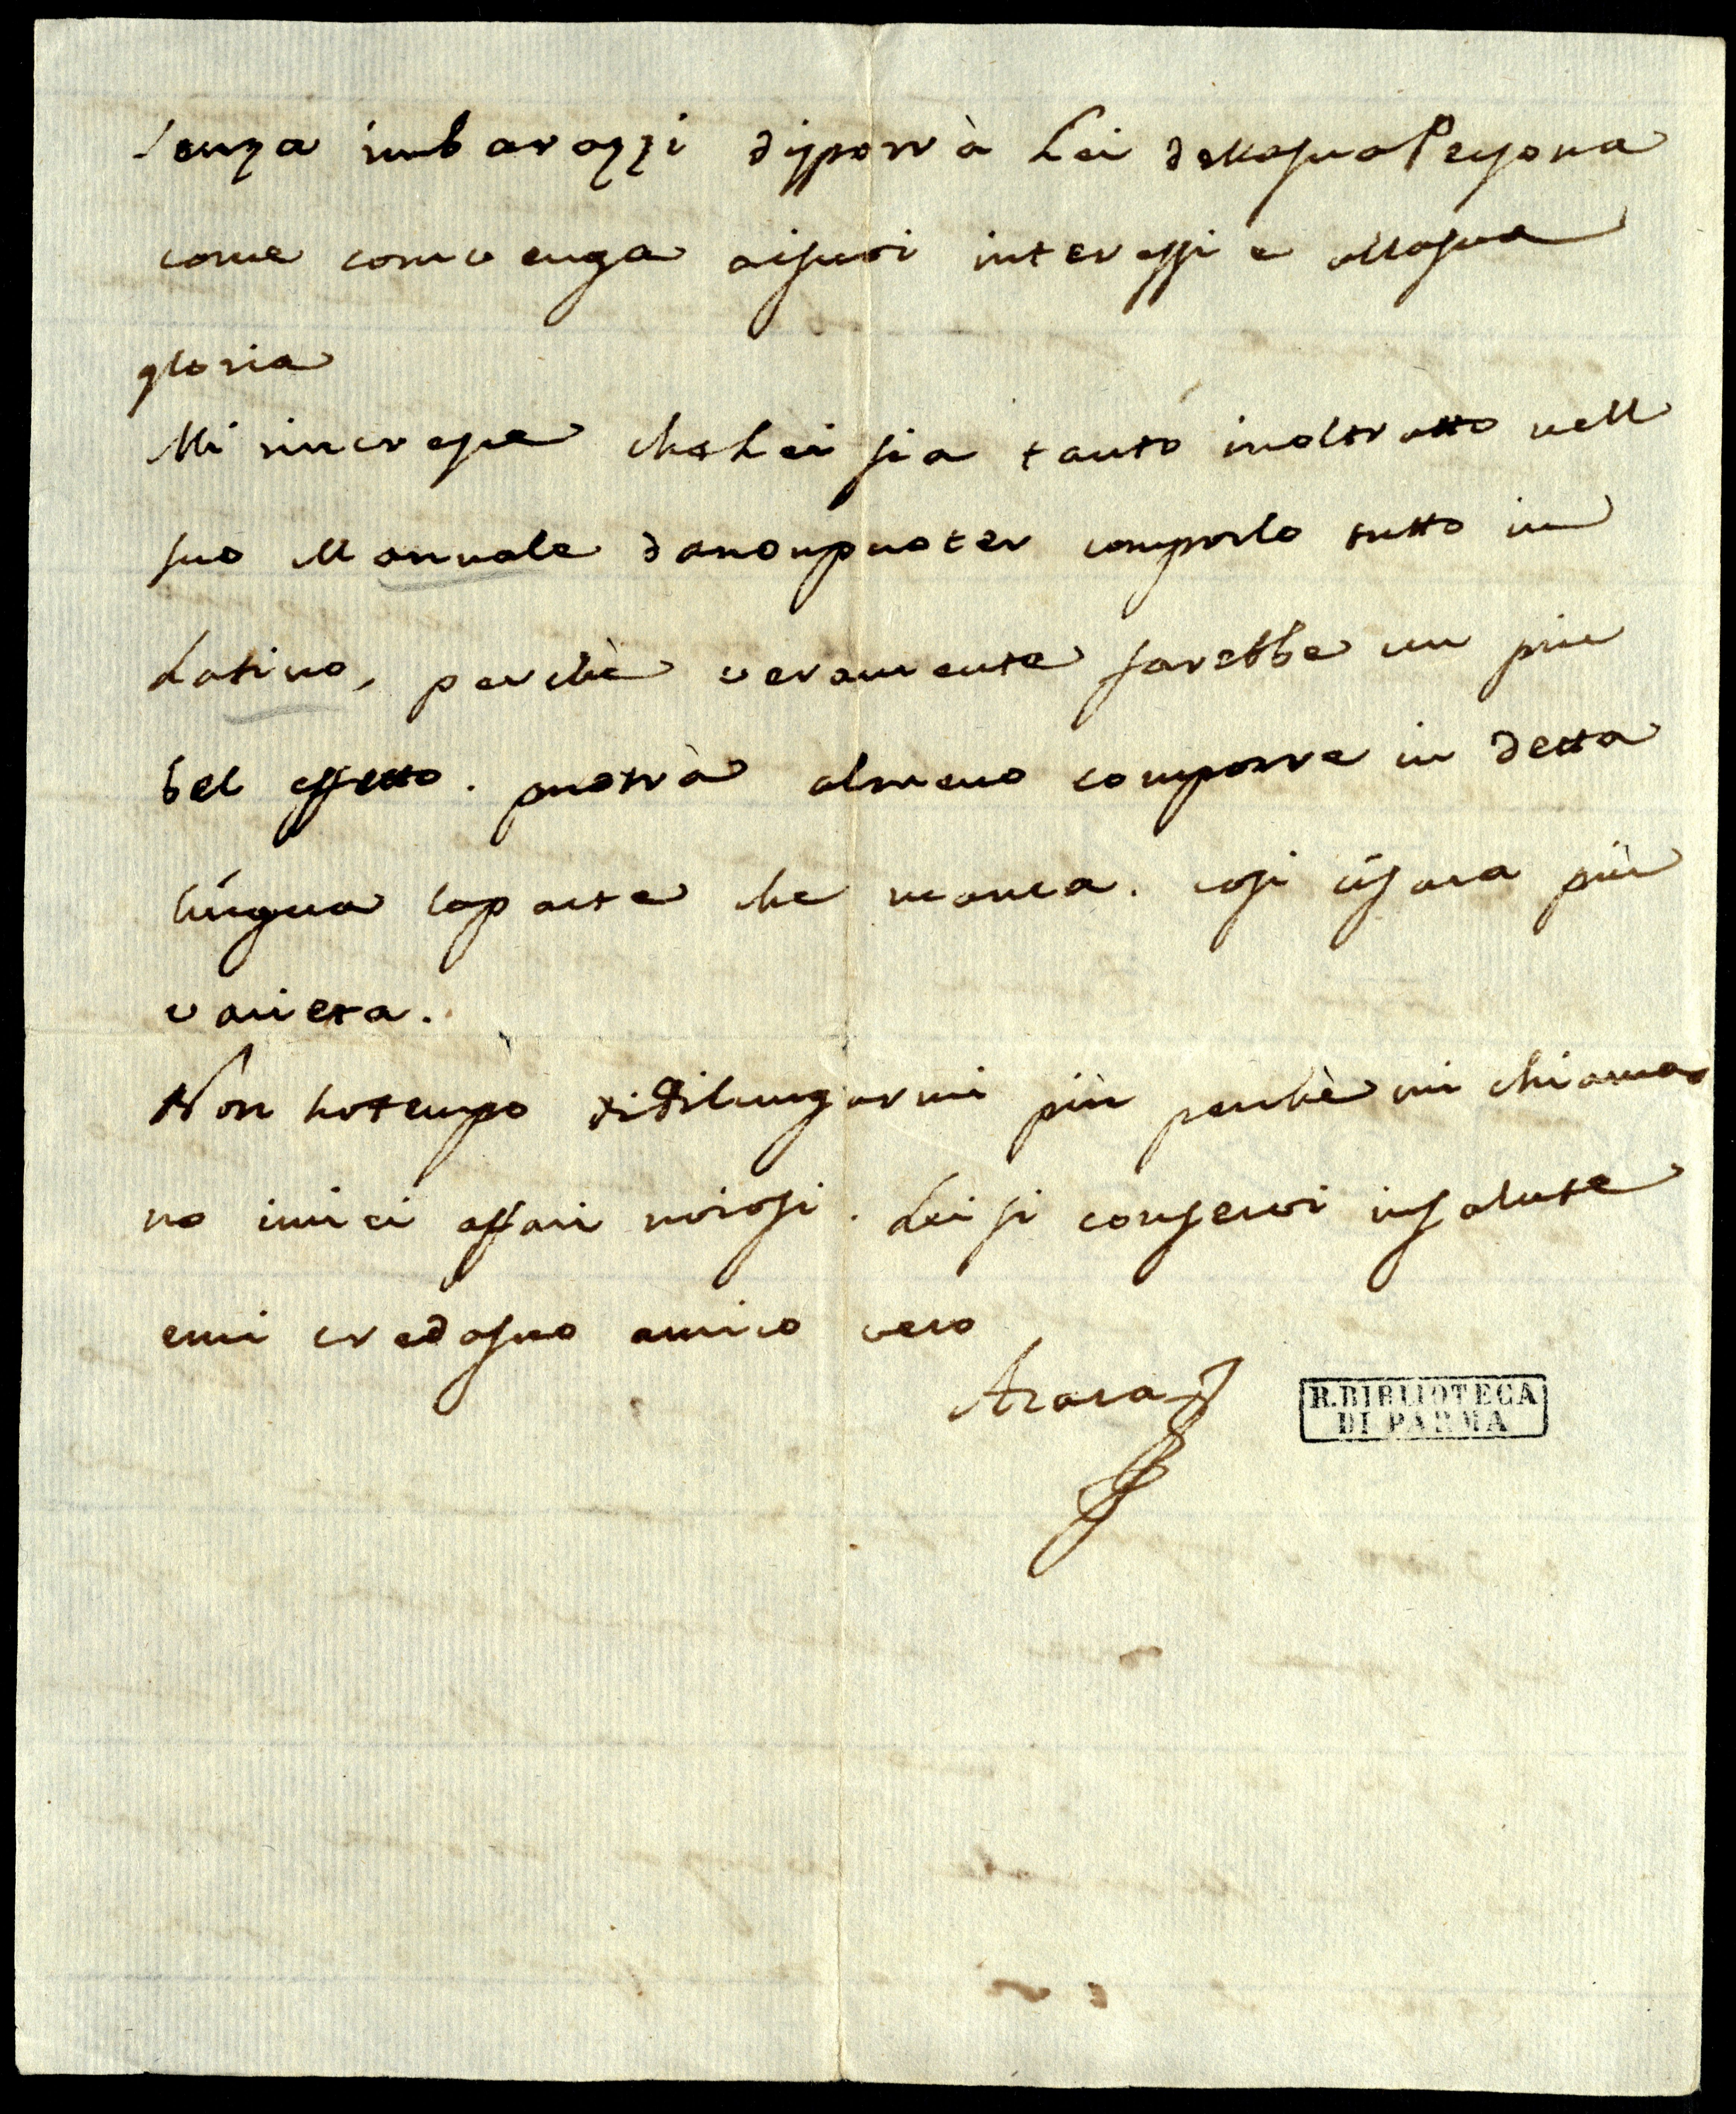 senza imbarazzi disporrà Lei della sua Persona
come convenga ai suoi interessi e alla sua
gloria
Mi rincresce che Lei sia tanto inoltratto nell
suo Manuale da non puoter comporlo tutto in
Latino, perchè veramente sarebbe un piu
bel effetto. puotrà almeno comporre in detta
lingua la parte che manca. cosi ci sara più
varieta.
Non ho tempo di dilungarmi più perchè mi chiama
no i miei affari noiosi. Lei si conservi in salute
e mi creda suo amico vero
Azara
R. BIBLIOTECA
DI PARMA